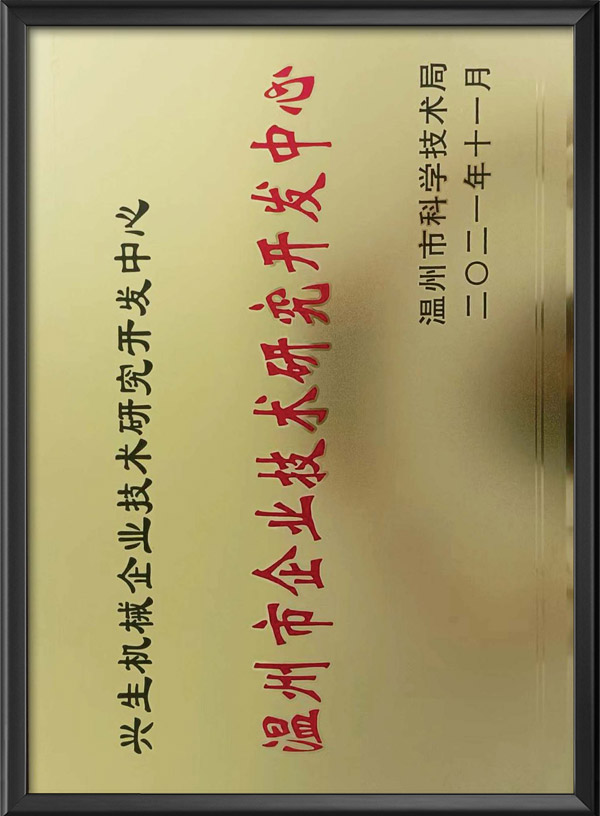 兴生机械企业技术研究开发中心
温州市企业技术研究开发中心
温州市科学技术局
二〇二一年十一月